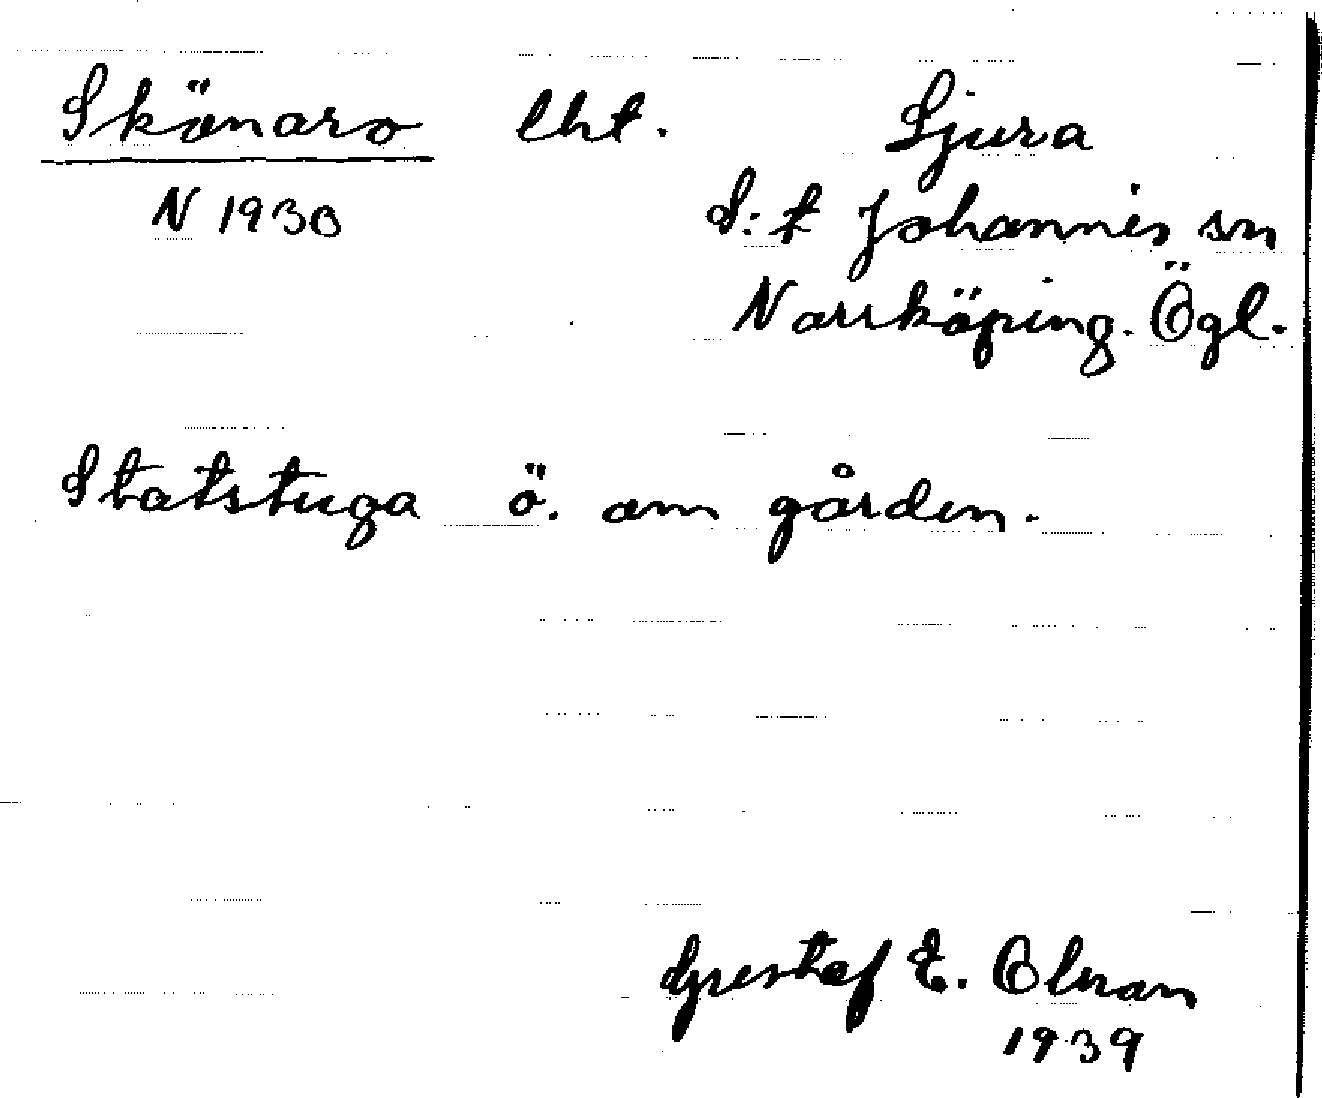 Skönaro lht. Ljura
N 1930 S:t Johannes sn
Norrköping. Ögl.
Statstuga ö. om gården.
Gustaf E. Olnan
1939